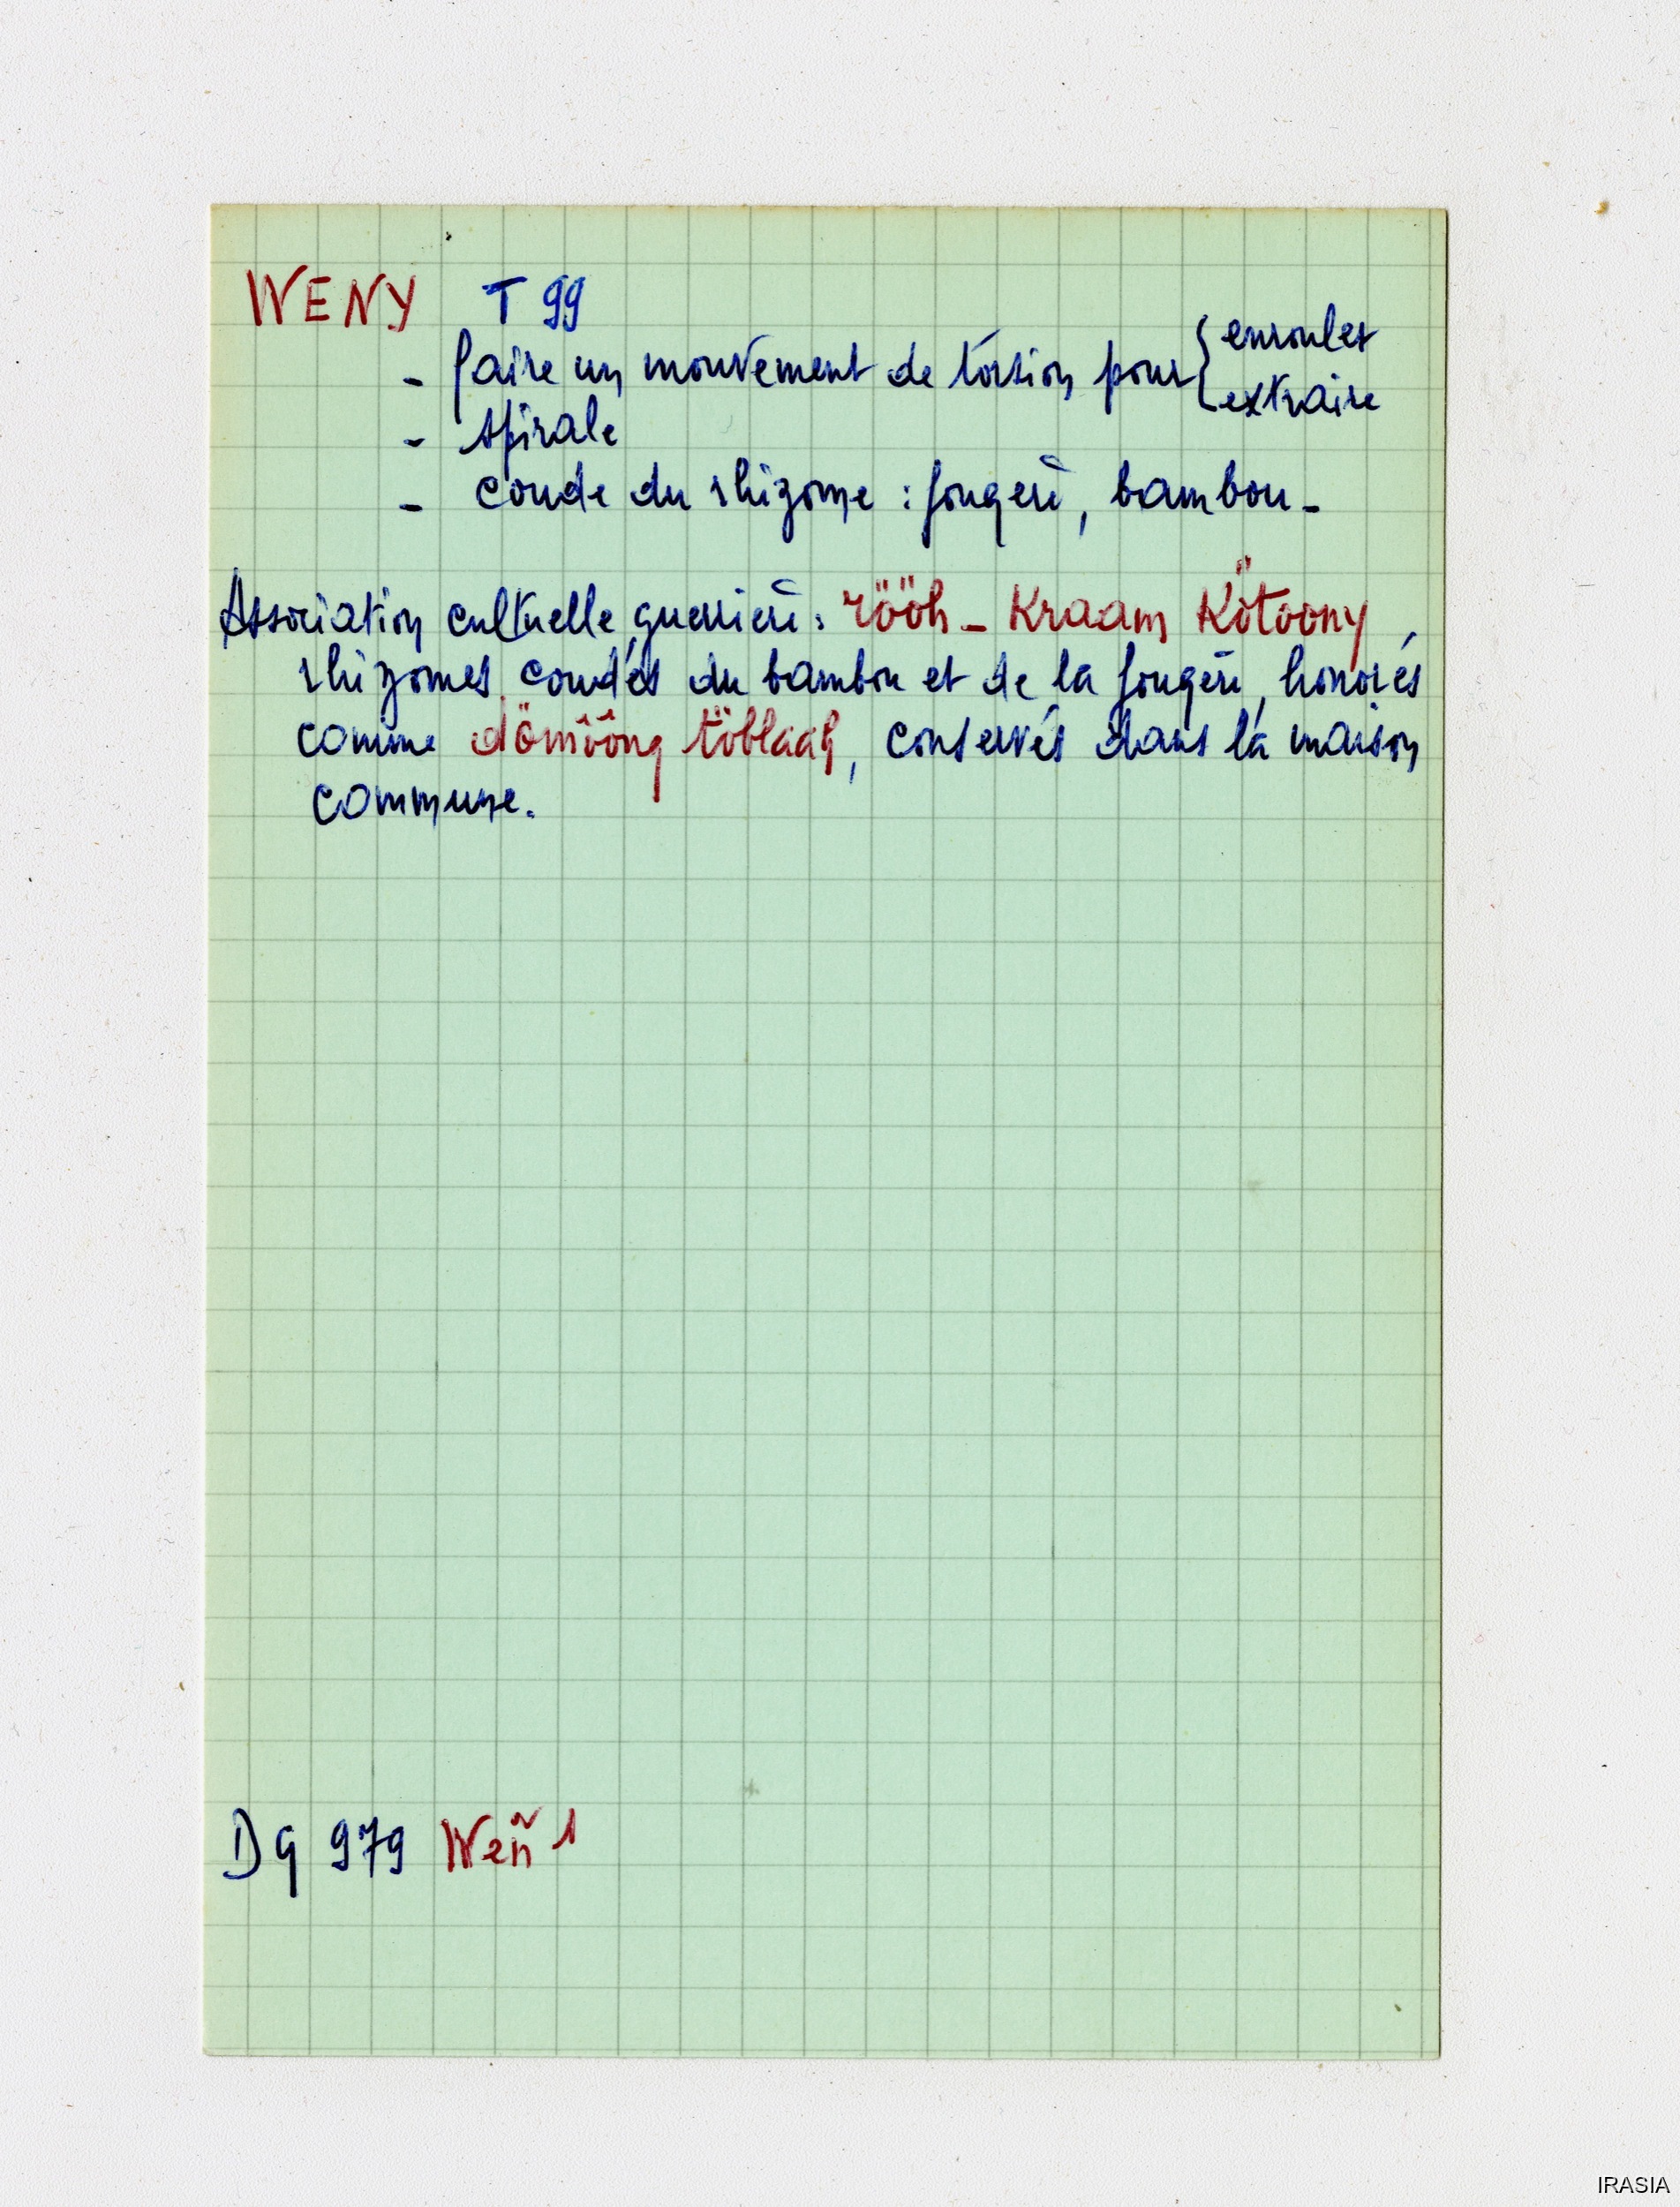 WENY T 99
enrouler
- faire un mouvement de torsion pour {
extraire
- spirale
- coude du rhizome : fougère, bambou -
Association cultuelle guerrière : rööh - Kraam Kötoony,
rhizomes coudés du bambou et de la fougère, honorés
comme dömôông töblaah, conservés dans la maison
commune.
DG 979 Weñ 1
IRASIA